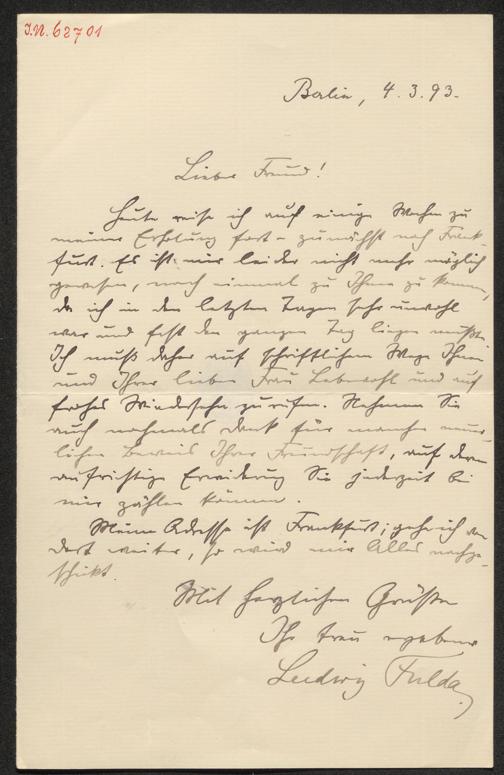 I.N. 62701
Berlin, 4.3.93.
Lieber Freund!
Heute reise ich auf einige Wochen zu
meiner Erholung fort – zunächst nach Frank-
furt. Es ist mir leider nicht mehr möglich
gewesen, noch einmal zu Ihnen zu kommen,
da ich in den letzten Tagen sehr unwohl
war und fast den ganzen Tag liegen mußte.
Ich muß daher auf schriftlichem Wege Ihnen
und Ihrer lieben Frau Lebewohl und auf
frohes Wiedersehn zurufen. Nehmen Sie
auch nochmals Dank für manchen neuer-
lichen Beweis Ihrer Freundschaft, auf deren
aufrichtige Erwiderung Sie jederzeit bei
mir zählen können.
Meine Adresse ist Frankfurt; geh ich von
dort weiter, so wird mir Alles nachge-
schickt.
Mit herzlichen Grüßen
Ihr treu ergebener
Ludwig Fulda